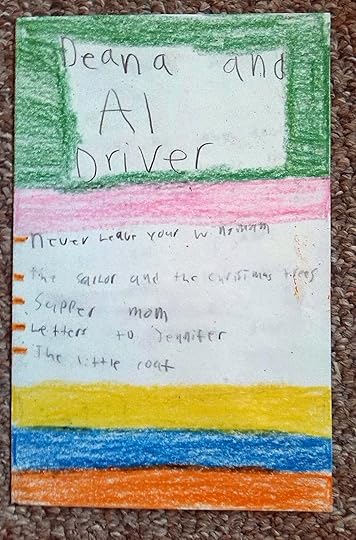 Deana and
Al
Driver
Never Leave Your
the sailor and the christmas trees
Supper mom
Letters to Jennifer
The little coat